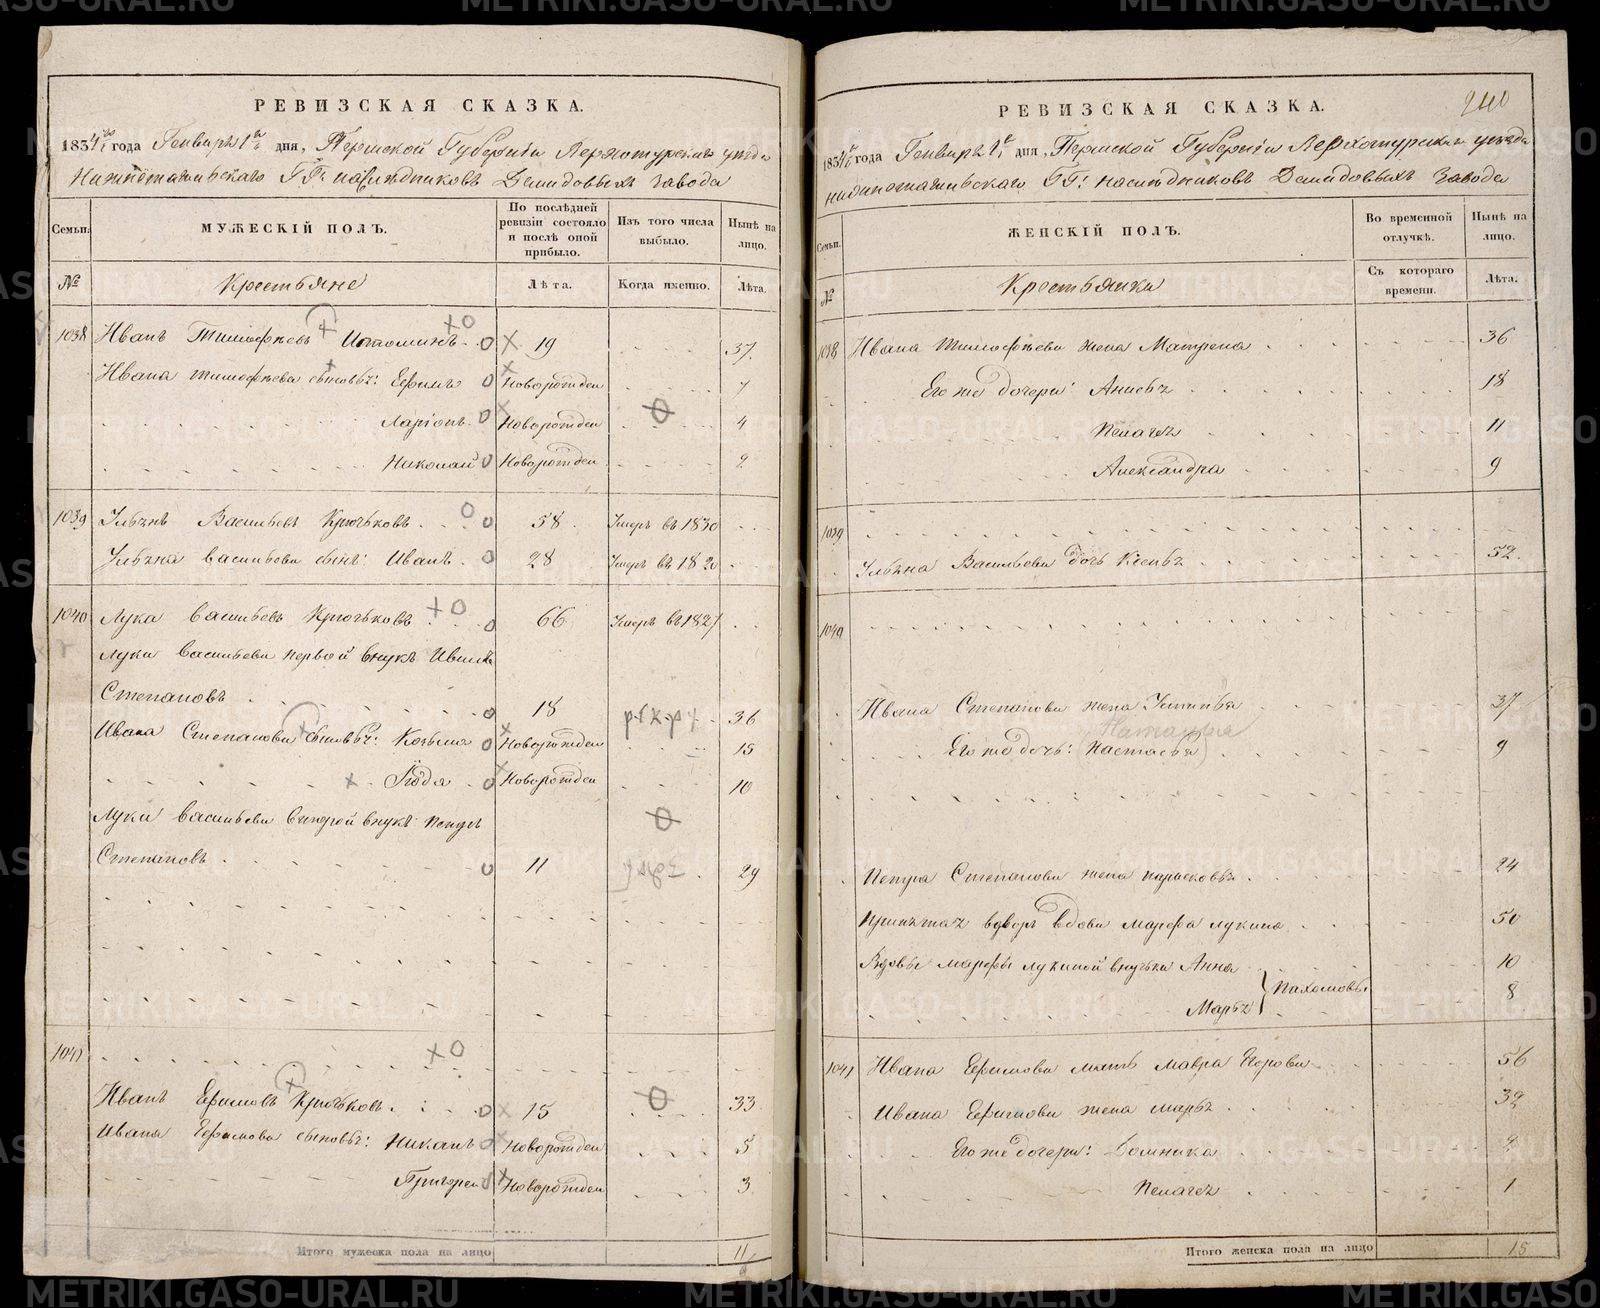 РЕВИЗСКАЯ СКАЗКА.
1834го года Генваря 1го дня, Пермской Губернiи Верхотурскаго уезда
Нижнетагильскаго ГГ: наследниковъ Демидовыхъ завода
Семьи.
МУЖЕСКIЙ ПОЛЪ.
По послѣдней ревизiи состояло и послѣ оной прибыло.
Изъ того числа выбыло.
Нынѣ на лицо.
№
Крестьяне
Лѣта.
Когда именно.
Лѣта.
1038 Иванъ Тимофѣевъ Истоминъ 19 37
Ивана Тимофѣева сыновьѣ: Ефимъ Новорожден 7
Ларiонъ Новорожден 4
Николай Новорожден 2
1039 Ульянъ Васильевъ Крючковъ 58 Умеръ въ 1830
Ульяна васильева сынъ: Иванъ 28 Умеръ въ 1820
1040 Лука васильевъ Крючьковъ 66 Умеръ въ 1827
Луки васильева первой внукъ Иванъ
Степановъ 18 36
Ивана Степанова сыновьѣ: Козьма Новорожден 15
Новорожден 10
Луки васильева второй внукъ Петръ
Степановъ 11 29
1041
Иванъ Ефимовъ Крючьковъ 15 33
Ивана Ефимова сыновьѣ: Никанъ Новорожден 5
Григорей Новорожден 3
Итого мужеска пола на лицо 11
РЕВИЗСКАЯ СКАЗКА.
240
1834го года Генваря 1го дня, Пермской Губернiи Верхотурскаго уезда
нижнетагильскаго ГГ: наследниковъ Демидовыхъ завода
Семьи.
ЖЕНСКIЙ ПОЛЪ.
Во временной отлучкѣ.
Нынѣ на лицо.
№
Крестьянки
Съ котораго времени.
Лѣта.
1038 Ивана Тимофѣева жена Матрена 36
Его же дочери: Анисья 18
Пелагея 11
Александра 9
1039
Ульяна Васильева дочь Ксенья 52
1040
Ивана Степанова жена Устинья 37
Наталья
Его же дочь: Настасья 9
Петра Степанова жена парасковья 24
Принятая вдворъ вдова марфа лукина 50
Вдовы марфы лукиной внучьки Анна 10
Марья } Пахомовы 8
1041 Ивана Ефимова мать Мавра Егорова 56
Ивана Ефимова жена марья 32
Его же дочери: Домника
Пелагея 1
Итого женска пола на лицо 15
METRIKI.GASO-URAL.RU